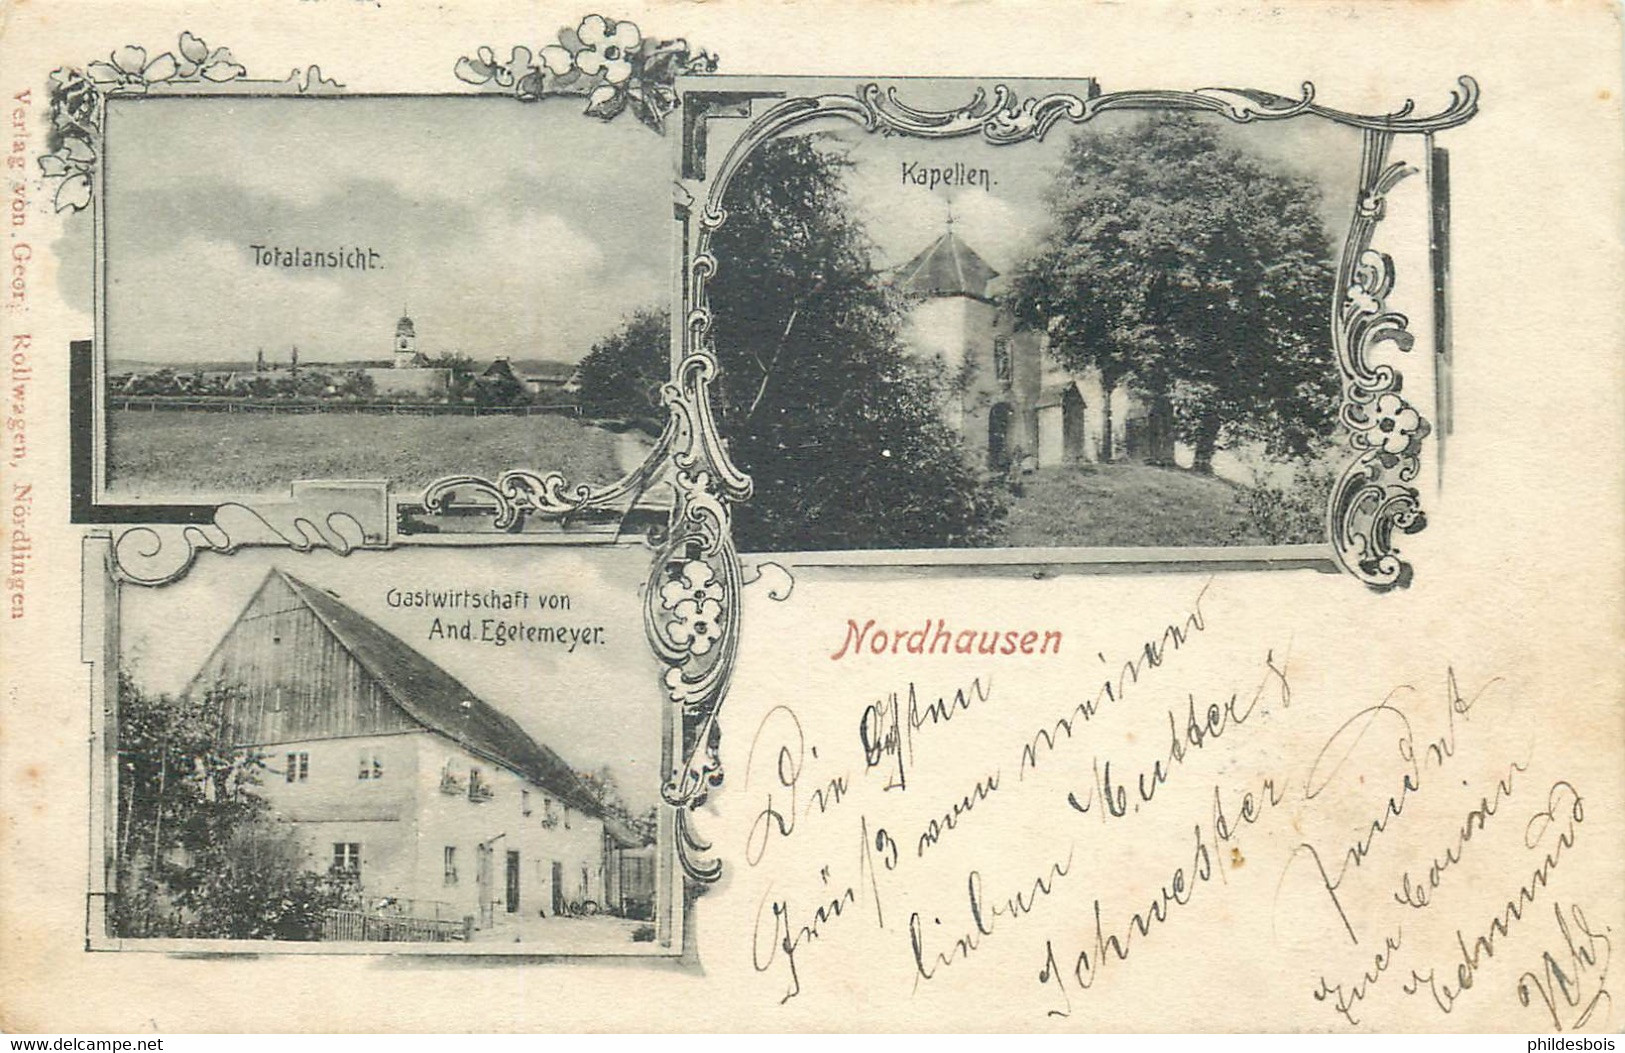 Verlag von Georg Rollwagen, Nördlingen
Totalansicht.
Kapellen.
Gastwirtschaft von
And. Egetemeyer.
Nordhausen
Die
Grüß von meiner
lieben Mutter &
Schwester sendet
Euer Cousin
Edmund
delcampe.net
phildesbois